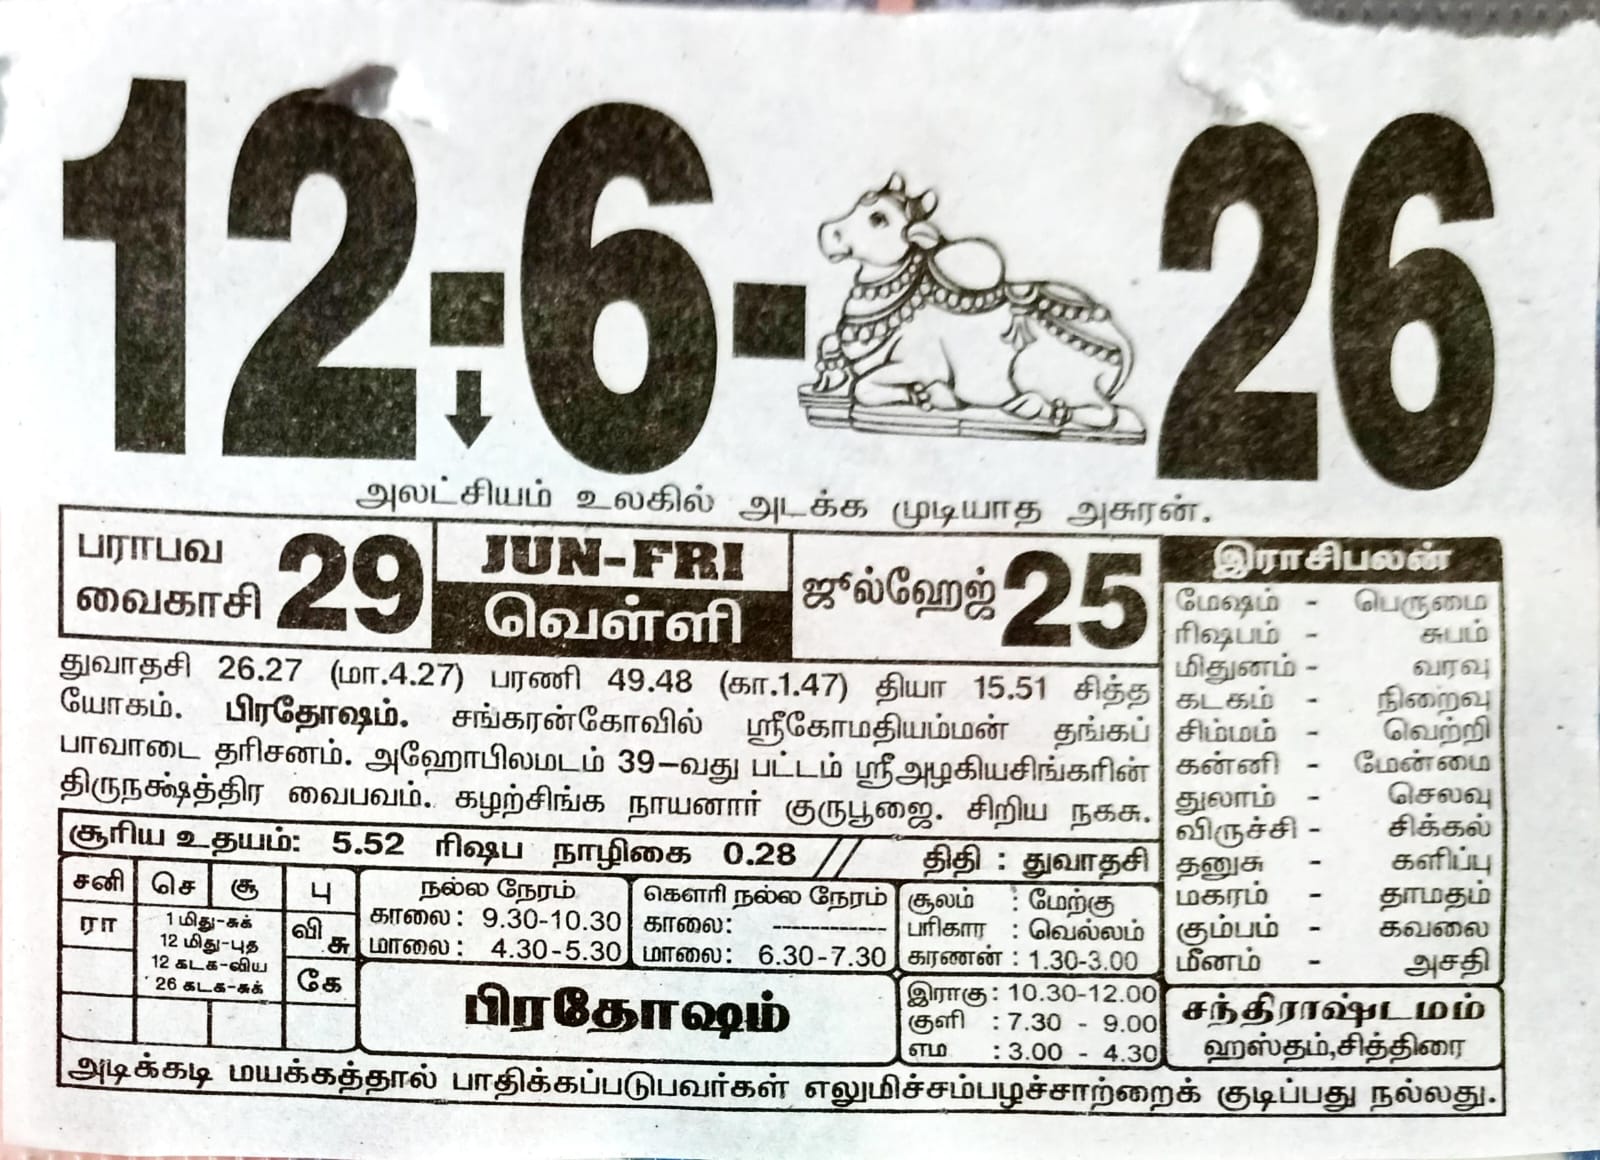 12-6-26
அலட்சியம் உலகில் அடக்க முடியாத அசுரன்.
பராபவ
வைகாசி 29
JUN-FRI
வெள்ளி
ஜூல்ஹேஜ் 25
துவாதசி 26.27 (மா.4.27) பரணி 49.48 (கா.1.47) தியா 15.51 சித்த
யோகம். பிரதோஷம். சங்கரன்கோவில் ஸ்ரீகோமதியம்மன் தங்கப்
பாவாடை தரிசனம். அஹோபிலமடம் 39-வது பட்டம் ஸ்ரீஅழகியசிங்கரின்
திருநக்ஷத்திர வைபவம். கழற்சிங்க நாயனார் குருபூஜை. சிறிய நகசு.
சூரிய உதயம்: 5.52 ரிஷப நாழிகை 0.28 // திதி : துவாதசி
சனி செ சூ பு
ரா
1 மிது-சுக்
12 மிது-புத
12 கடக-விய
26 கடக-சுக்
வி
சு
கே
நல்ல நேரம்
காலை: 9.30-10.30
மாலை: 4.30-5.30
கௌரி நல்ல நேரம்
காலை: ------------
மாலை: 6.30-7.30
பிரதோஷம்
சூலம் : மேற்கு
பரிகார : வெல்லம்
கரணன் : 1.30-3.00
இராகு: 10.30-12.00
குளி : 7.30 - 9.00
எம : 3.00 - 4.30
இராசிபலன்
மேஷம் - பெருமை
ரிஷபம் - சுபம்
மிதுனம் - வரவு
கடகம் - நிறைவு
சிம்மம் - வெற்றி
கன்னி - மேன்மை
துலாம் - செலவு
விருச்சி - சிக்கல்
தனுசு - களிப்பு
மகரம் - தாமதம்
கும்பம் - கவலை
மீனம் - அசதி
சந்திராஷ்டமம்
ஹஸ்தம்,சித்திரை
அடிக்கடி மயக்கத்தால் பாதிக்கப்படுபவர்கள் எலுமிச்சம்பழச்சாற்றைக் குடிப்பது நல்லது.